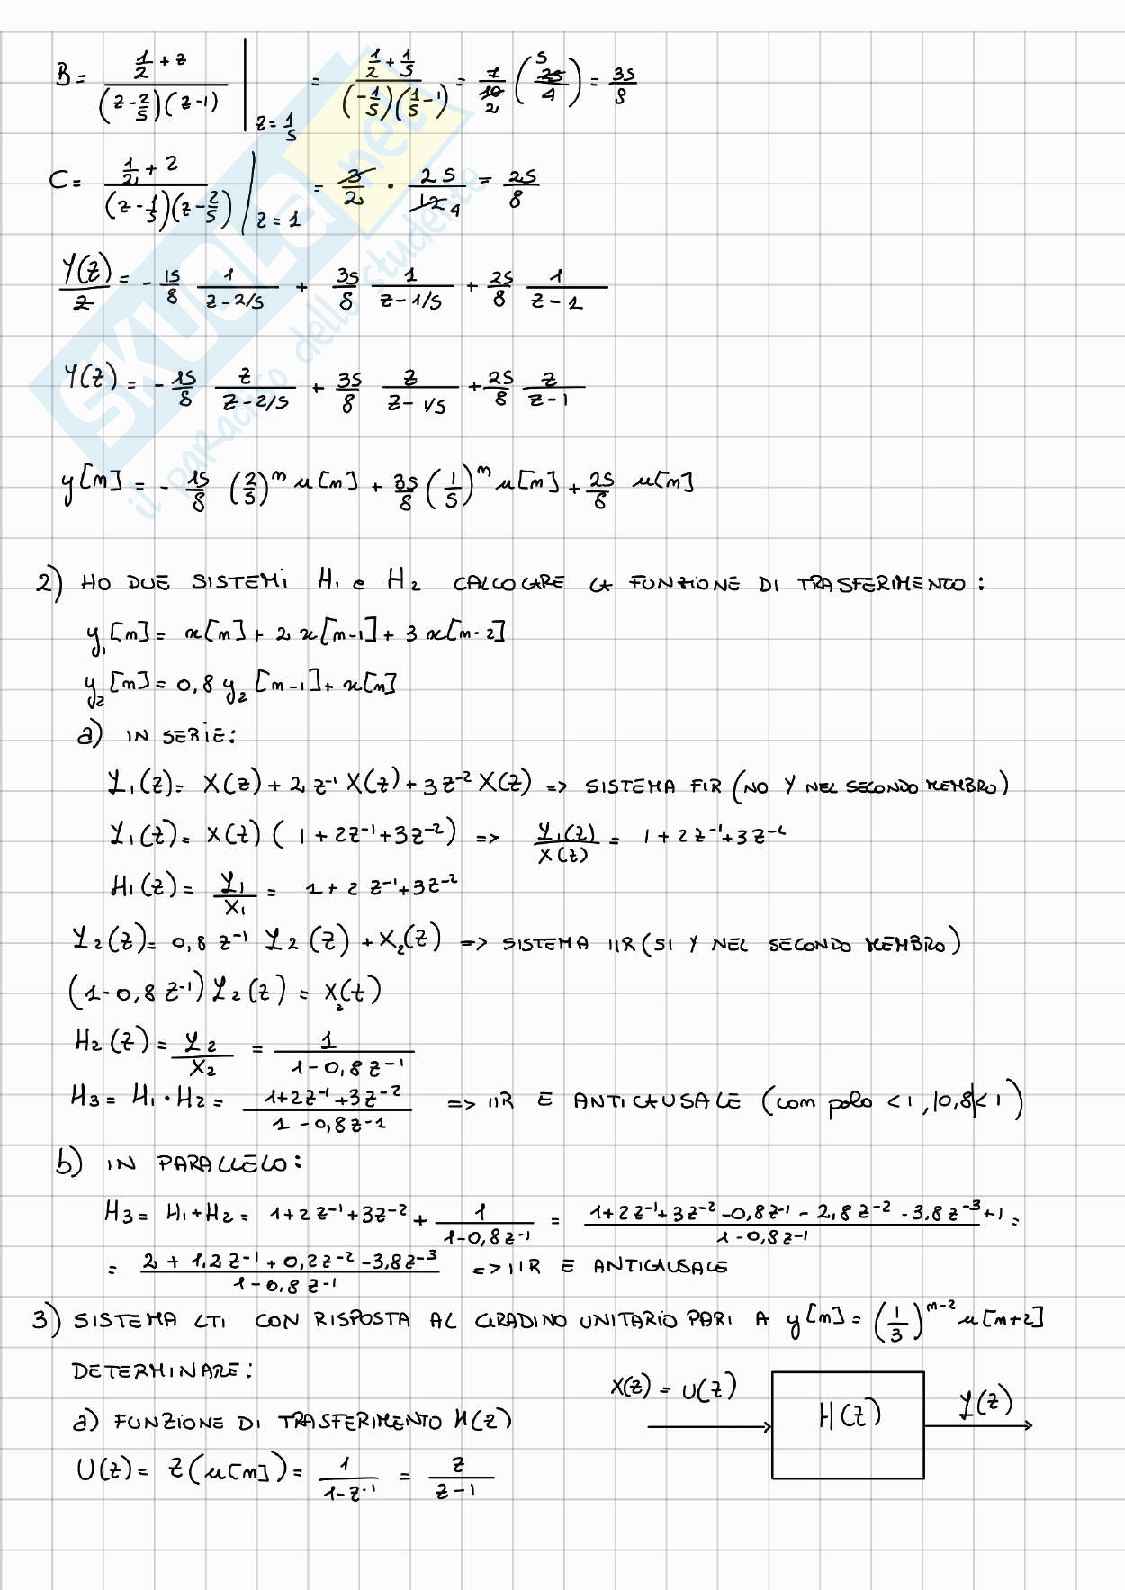 B = (1/2 + z) / ((z - 2/5)(z - 1)) |z=1/5 = (1/2 + 1/5) / ((-1/5)(1/5 - 1)) = 7/10 2 (5 25/4) = 35/8
C = (1/2 + z) / ((z - 1/5)(z - 2/5)) |z=1 = 3/2 · 25/12 4 = 25/8
Y(z)/z = - 15/8 1/(z - 2/5) + 35/8 1/(z - 1/5) + 25/8 1/(z - 1)
Y(z) = - 15/8 z/(z - 2/5) + 35/8 z/(z - 1/5) + 25/8 z/(z - 1)
y[n] = - 15/8 (2/5)^n u[n] + 35/8 (1/5)^n u[n] + 25/8 u[n]
2) HO DUE SISTEMI H1 e H2 CALCOLARE LA FUNZIONE DI TRASFERIMENTO:
y1[n] = x[n] + 2x[n-1] + 3x[n-2]
y2[n] = 0,8 y2[n-1] + x[n]
a) IN SERIE:
Y1(z) = X(z) + 2z^-1 X(z) + 3z^-2 X(z) => SISTEMA FIR (NO Y NEL SECONDO MEMBRO)
Y1(z) = X(z) (1 + 2z^-1 + 3z^-2) => Y1(z)/X(z) = 1 + 2z^-1 + 3z^-2
H1(z) = Y1/X1 = 1 + 2z^-1 + 3z^-2
Y2(z) = 0,8 z^-1 Y2(z) + X2(z) => SISTEMA IIR (SI Y NEL SECONDO MEMBRO)
(1 - 0,8 z^-1) Y2(z) = X2(z)
H2(z) = Y2/X2 = 1/(1 - 0,8z^-1)
H3 = H1 · H2 = (1 + 2z^-1 + 3z^-2)/(1 - 0,8z-1) => IIR E ANTICAUSALE (com polo < 1, |0,8| < 1)
b) IN PARALLELO:
H3 = H1 + H2 = 1 + 2z^-1 + 3z^-2 + 1/(1 - 0,8z^-1) = (1 + 2z^-1 + 3z^-2 - 0,8z^-1 - 2,8z^-2 - 3,8z^-3 + 1)/(1 - 0,8z^-1) =
= (2 + 1,2z^-1 + 0,2z^-2 - 3,8z^-3)/(1 - 0,8z^-1) => IIR E ANTICAUSALE
3) SISTEMA LTI CON RISPOSTA AL GRADINO UNITARIO PARI A y[n] = (1/3)^n-2 u[n+2]
DETERMINARE:
X(z) = U(z) H(z) Y(z)
a) FUNZIONE DI TRASFERIMENTO H(z)
U(z) = Z(u[n]) = 1/(1 - z^-1) = z/(z - 1)
SKUOLA.net
il paradiso dello studente